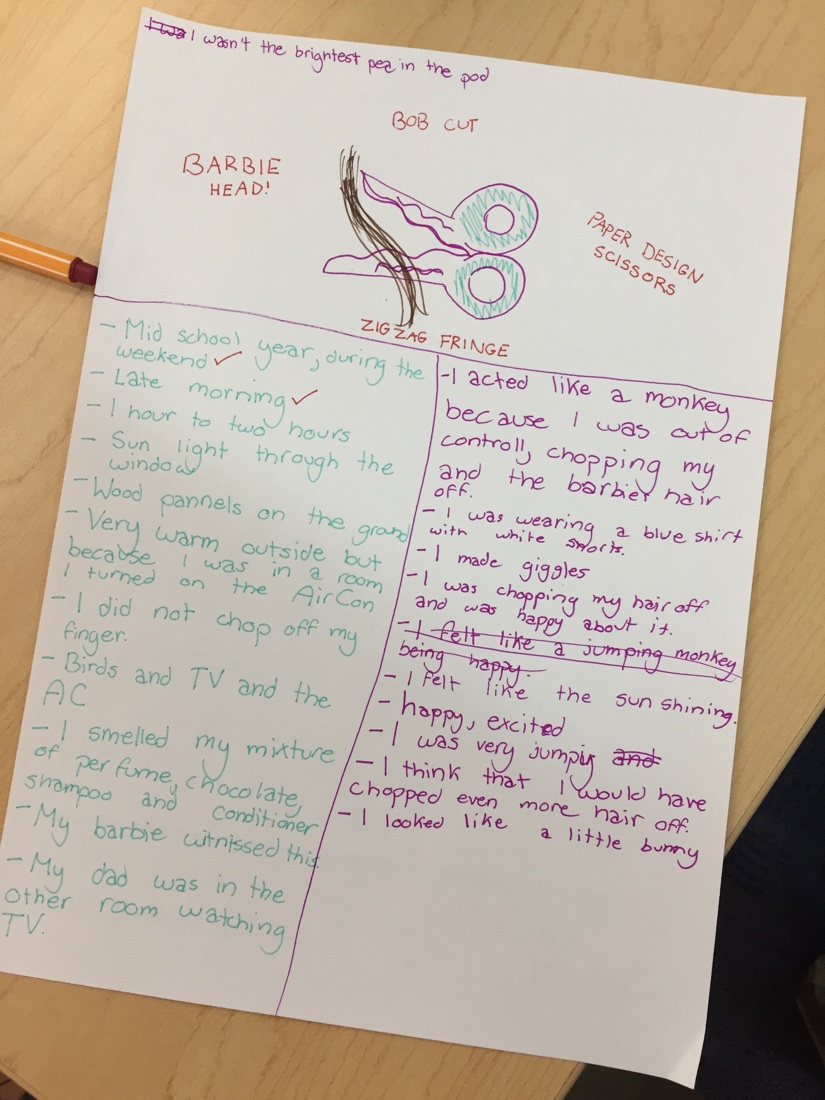 I wa I wasn't the brightest pea in the pod
BOB CUT
BARBIE
HEAD!
PAPER DESIGN
SCISSORS
ZIGZAG FRINGE
- Mid school year, during the
weekend ✓
- Late morning ✓
- 1 hour to two hours
- Sun light through the
window
- Wood pannels on the ground
- Very warm outside but
because I was in a room
I turned on the AirCon
- I did not chop off my
finger.
- Birds and TV and the
AC
- I smelled my mixture
of perfume, chocolate,
shampoo and conditioner
- My barbie witnissed this.
- My dad was in the
other room watching
TV.
- I acted like a monkey
because I was out of
controll, chopping my
and the barbier hair
off.
- I was wearing a blue shirt
with white shorts.
- I made giggles
- I was chopping my hair off
and was happy about it.
- I felt like a jumping monkey
being happy.
- I felt like the sun shining.
- happy, excited
- I was very jumpiy and
- I think that I would have
chopped even more hair off.
- I looked like a little bunny